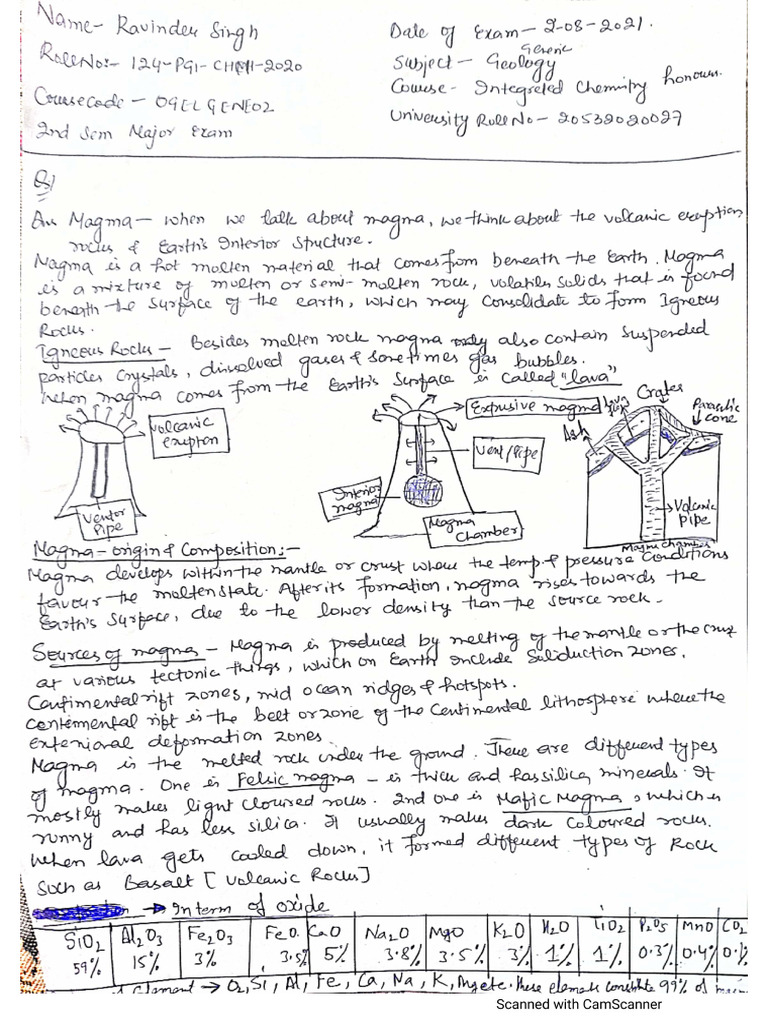 Name- Ravinder Singh
Roll No:- 124-PG1-CHM-2020
Course Code - OGEL GENE02
2nd Sem Major Exam
Date of Exam - 2-08-2021.
Generic
Subject - Geology
Course - Integreted Chemistry honours.
University Roll No - 20532020027
Q1
Ans Magma - when we talk about magma, we think about the volcanic eruption
rocks & Earth's Interior Structure.
Magma is a hot molten material that comes from beneath the Earth. Magma
is a mixture of molten or semi-molten rock, volatiles solids that is found
beneath the surface of the earth, which may consolidate to form Igneous
Rocks.
Igneous Rocks - Besides molten rock magma also contain suspended
particles crystals, dissolved gases & sometimes gas bubbles.
When magma comes from the Earth's Surface is called "lava"
Volcanic
erupton
Ventor
Pipe
Expusive magma
Vent/Pipe
Interior
magma
Magma
Chamber
Ash
Crates
Parasitic
cone
Volcanic
pipe
Magma chamber
Magma - origin & Composition:-
Magma develops within the mantle or crust where the temp. & pressure conditions
favour the molten state. After its formation, magma rises towards the
Earth's Surface, due to the lower density than the source rock.
Sources of magma - Magma is produced by melting of the mantle or the crust
at various tectonic things, which on Earth include Subduction zones,
Continental rift zones, mid ocean ridges & hotspots.
continental rift is the belt or zone of the Continental lithosphere where the
extenional deformation zones
Magma is the melted rock under the ground. There are different types
of magma. One is Felsic magma - is thick and has silica minerals. It
mostly makes light cloured rocks. 2nd one is Mafic Magma, which is
runny and has less silica. It usually makes dark coloured rocks.
When lava gets cooled down, it formed different types of Rock
such as Basalt [Volcanic Rocks]
→ Interm of oxide
SiO2 Al2O3 Fe2O3 FeO CaO Na2O MgO K2O H2O TiO2 P2O5 MnO CO2
59% 15% 3% 3.5% 5% 3.8% 3.5% 3% 1% 1% 0.3% 0.4% 0.1%
element → O2, Si, Al, Fe, Ca, Na, K, Mg etc. these elements constitute 99% of
Scanned with CamScanner